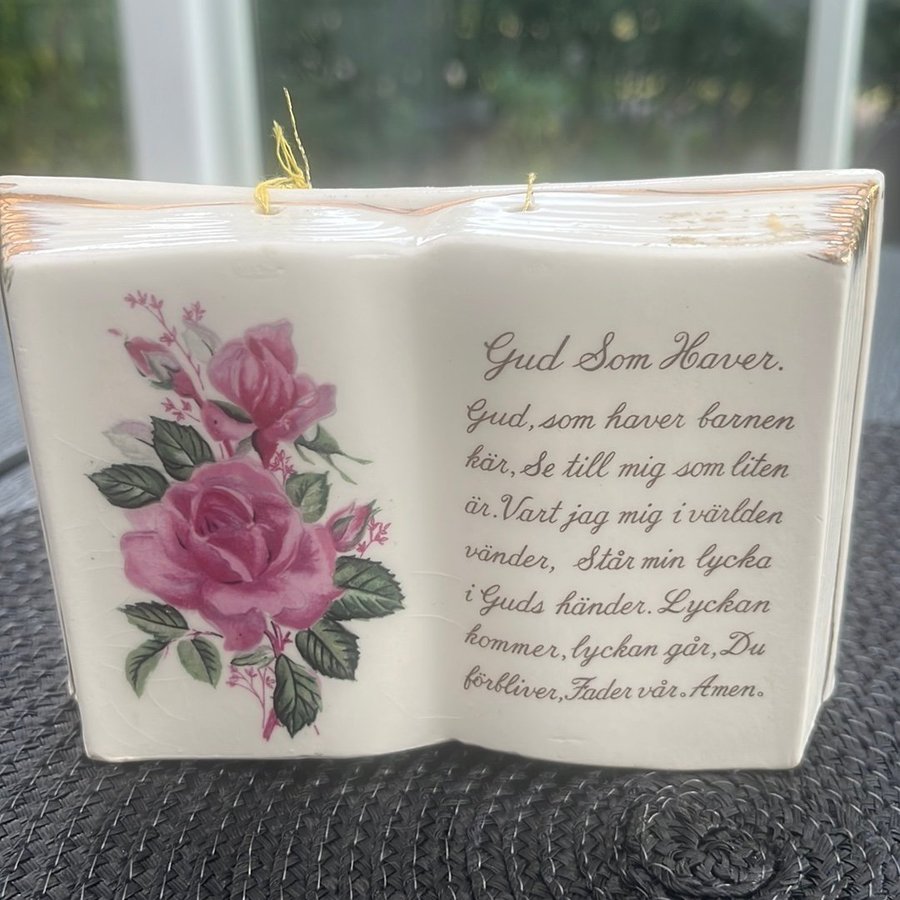 Gud Som Haver.
Gud, som haver barnen
kär, Se till mig som liten
är. Vart jag mig i världen
vänder, Står min lycka
i Guds händer. Lyckan
kommer, lyckan går, Du
förbliver, Fader vår. Amen.